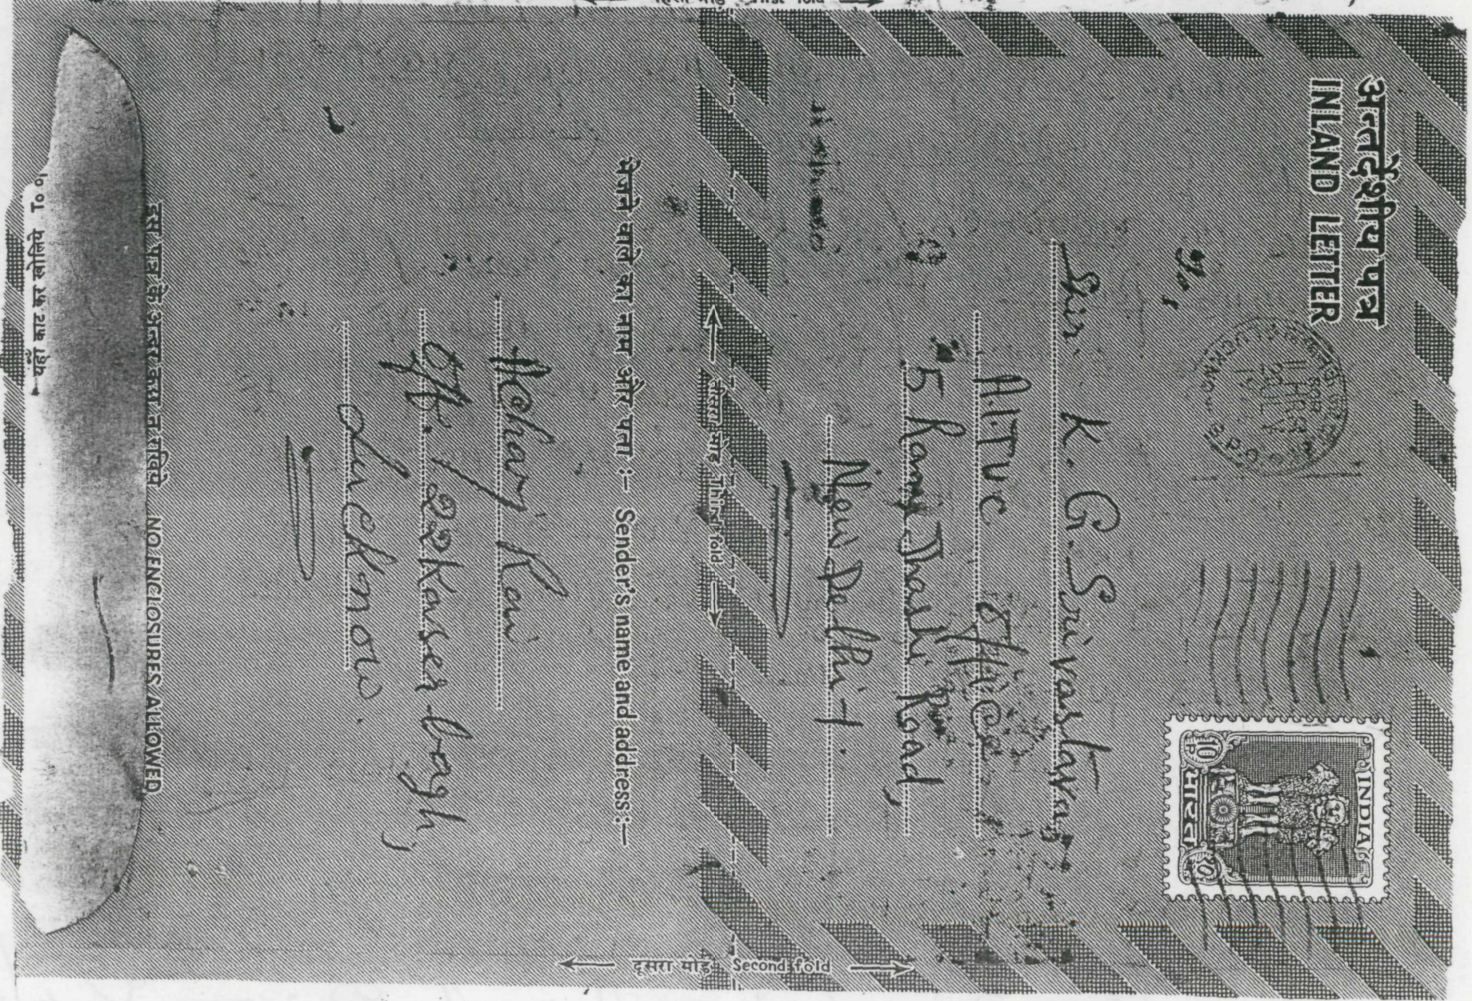 अन्तर्देशीय पत्र
INLAND LETTER
INDIA
10
भारत
Sri. K. G. Srivastava,
A.I.T.U.C Office
5 Rani Jhansi Road,
New Delhi-1.
तीसरा मोड़ Third fold
भेजने वाले का नाम और पता :- Sender's name and address:-
Mehar Rai
Off. 22 Kaiser-bagh,
Lucknow.
इस पत्र के अन्दर कुछ न रखिये NO ENCLOSURES ALLOWED
यहाँ काट कर खोलिये To
First fold
दूसरा मोड़ Second fold